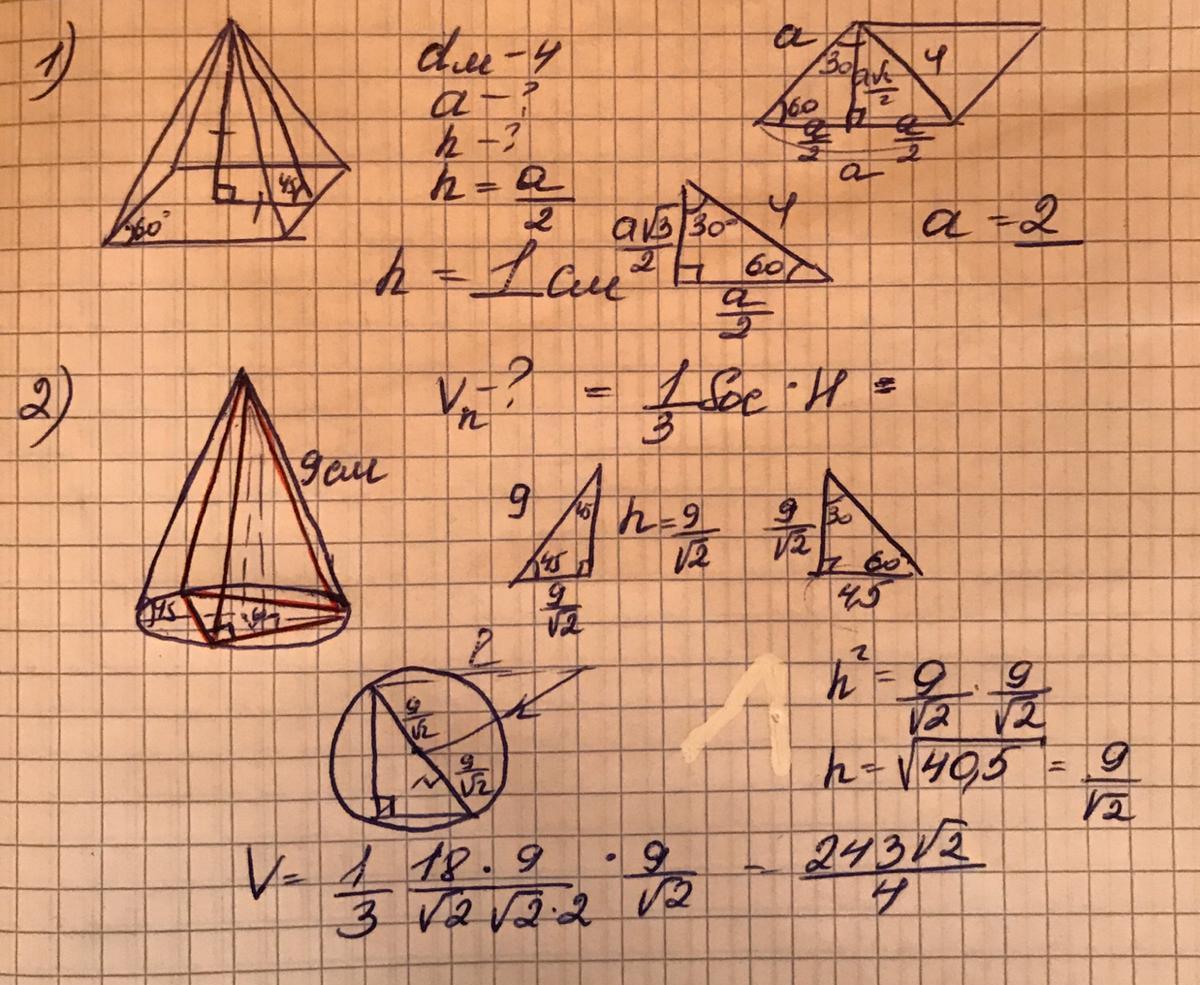 1)
dм - 4
a - ?
h - ?
h = a/2
h = 1 см
60°
45
a
30
4
a√2/2
60
a/2 a/2
a
a√3/2
30°
4
60
a/2
a = 2
2)
9 см
45
Vп - ? = 1/3 Sос · H =
9
45
45
9/√2
h = 9/√2
9/√2
30
60
45
9/√2
9/√2
h² = 9/√2 · 9/√2
h = √40,5 = 9/√2
V = 1/3 18 · 9/√2 √2 · 2 · 9/√2 - 243√2/4